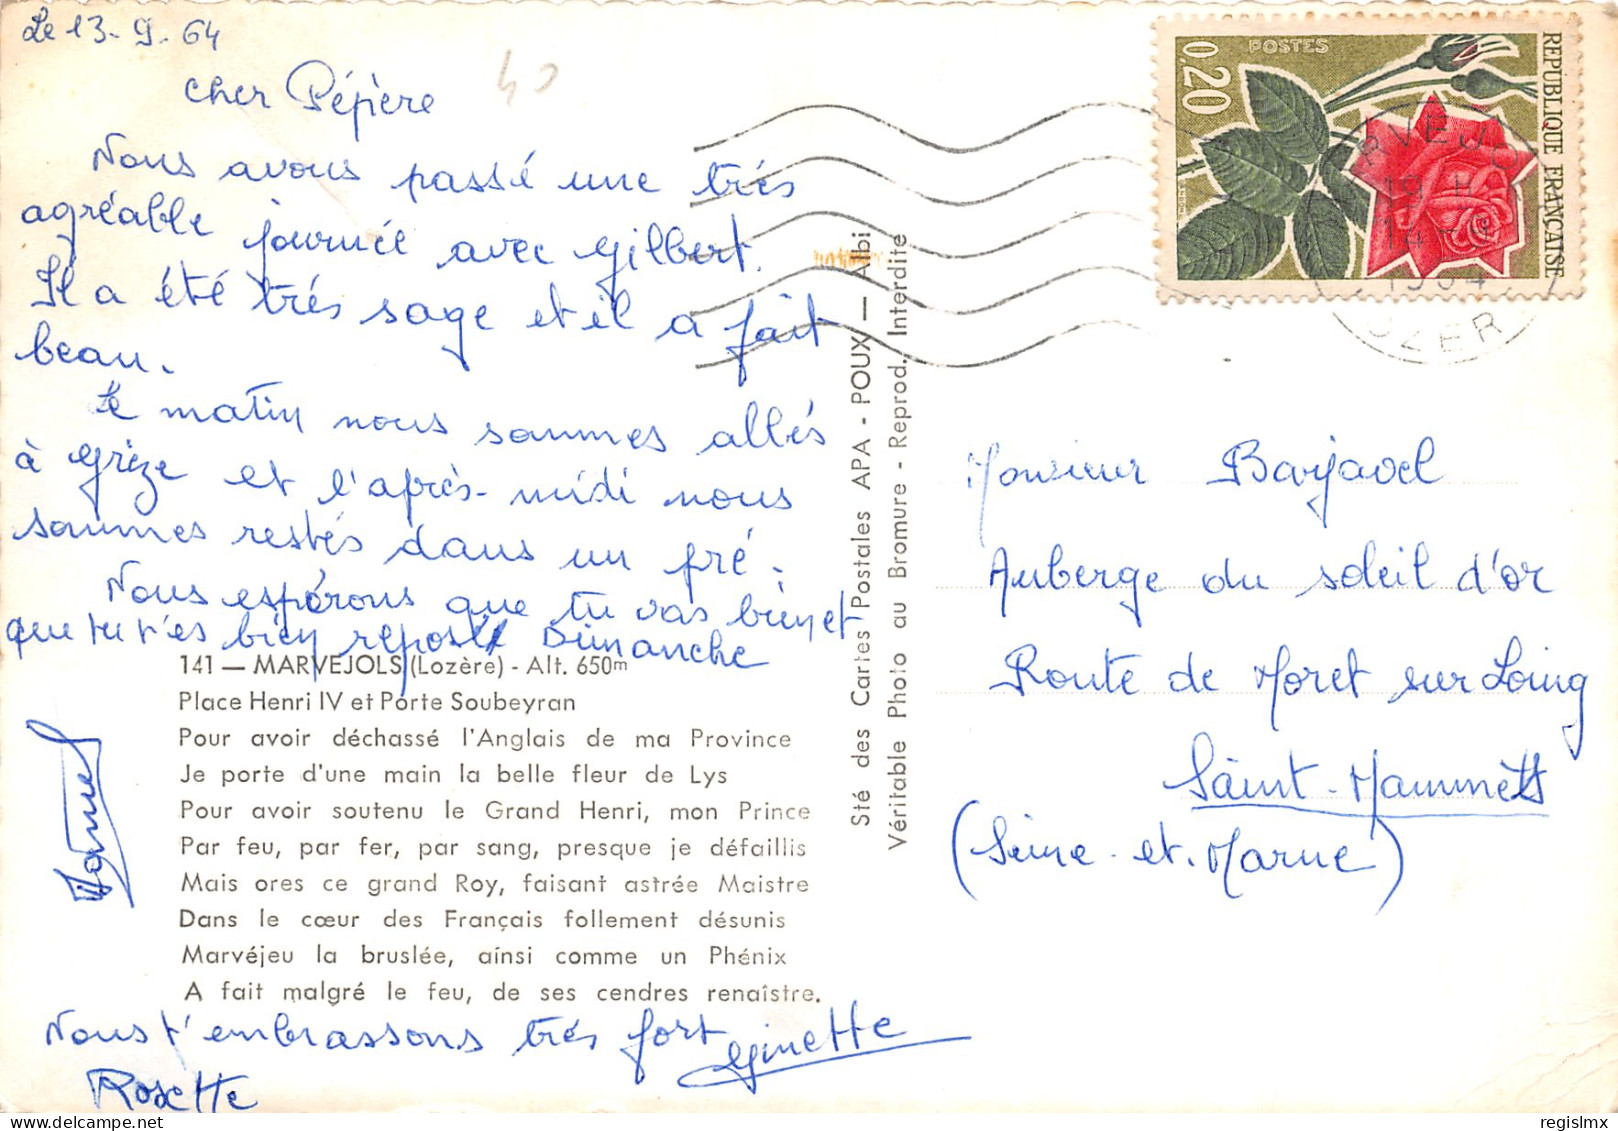 Le 13-9-64
40
cher Pépère
Nous avons passé une très
agréable journée avec Gilbert.
Il a été très sage et il a fait
beau.
Le matin nous sommes allés
à Grèze et l'après-midi nous
sommes restés dans un pré.
Nous espérons que tu vas bien et
que tu t'es bien reposé Dimanche
141 — MARVEJOLS (Lozère) - Alt. 650m
Place Henri IV et Porte Soubeyran
Pour avoir déchassé l'Anglais de ma Province
Je porte d'une main la belle fleur de Lys
Pour avoir soutenu le Grand Henri, mon Prince
Par feu, par fer, par sang, presque je défaillis
Mais ores ce grand Roy, faisant astrée Maistre
Dans le cœur des Français follement désunis
Marvéjeu la bruslée, ainsi comme un Phénix
A fait malgré le feu, de ses cendres renaîstre.
Nous t'embrassons très fort
Ginette
Rosette
Sté des Cartes Postales APA - POUX — Albi
Véritable Photo au Bromure - Reprod. Interdite
POSTES
0,20
REPUBLIQUE FRANÇAISE
RVEJO
19 H
14 - 9
1964
OZER
Monsieur Barjavel
Auberge du soleil d'or
Route de Moret sur Loing
Saint-Mammès
(Seine-et-Marne)
regislmx